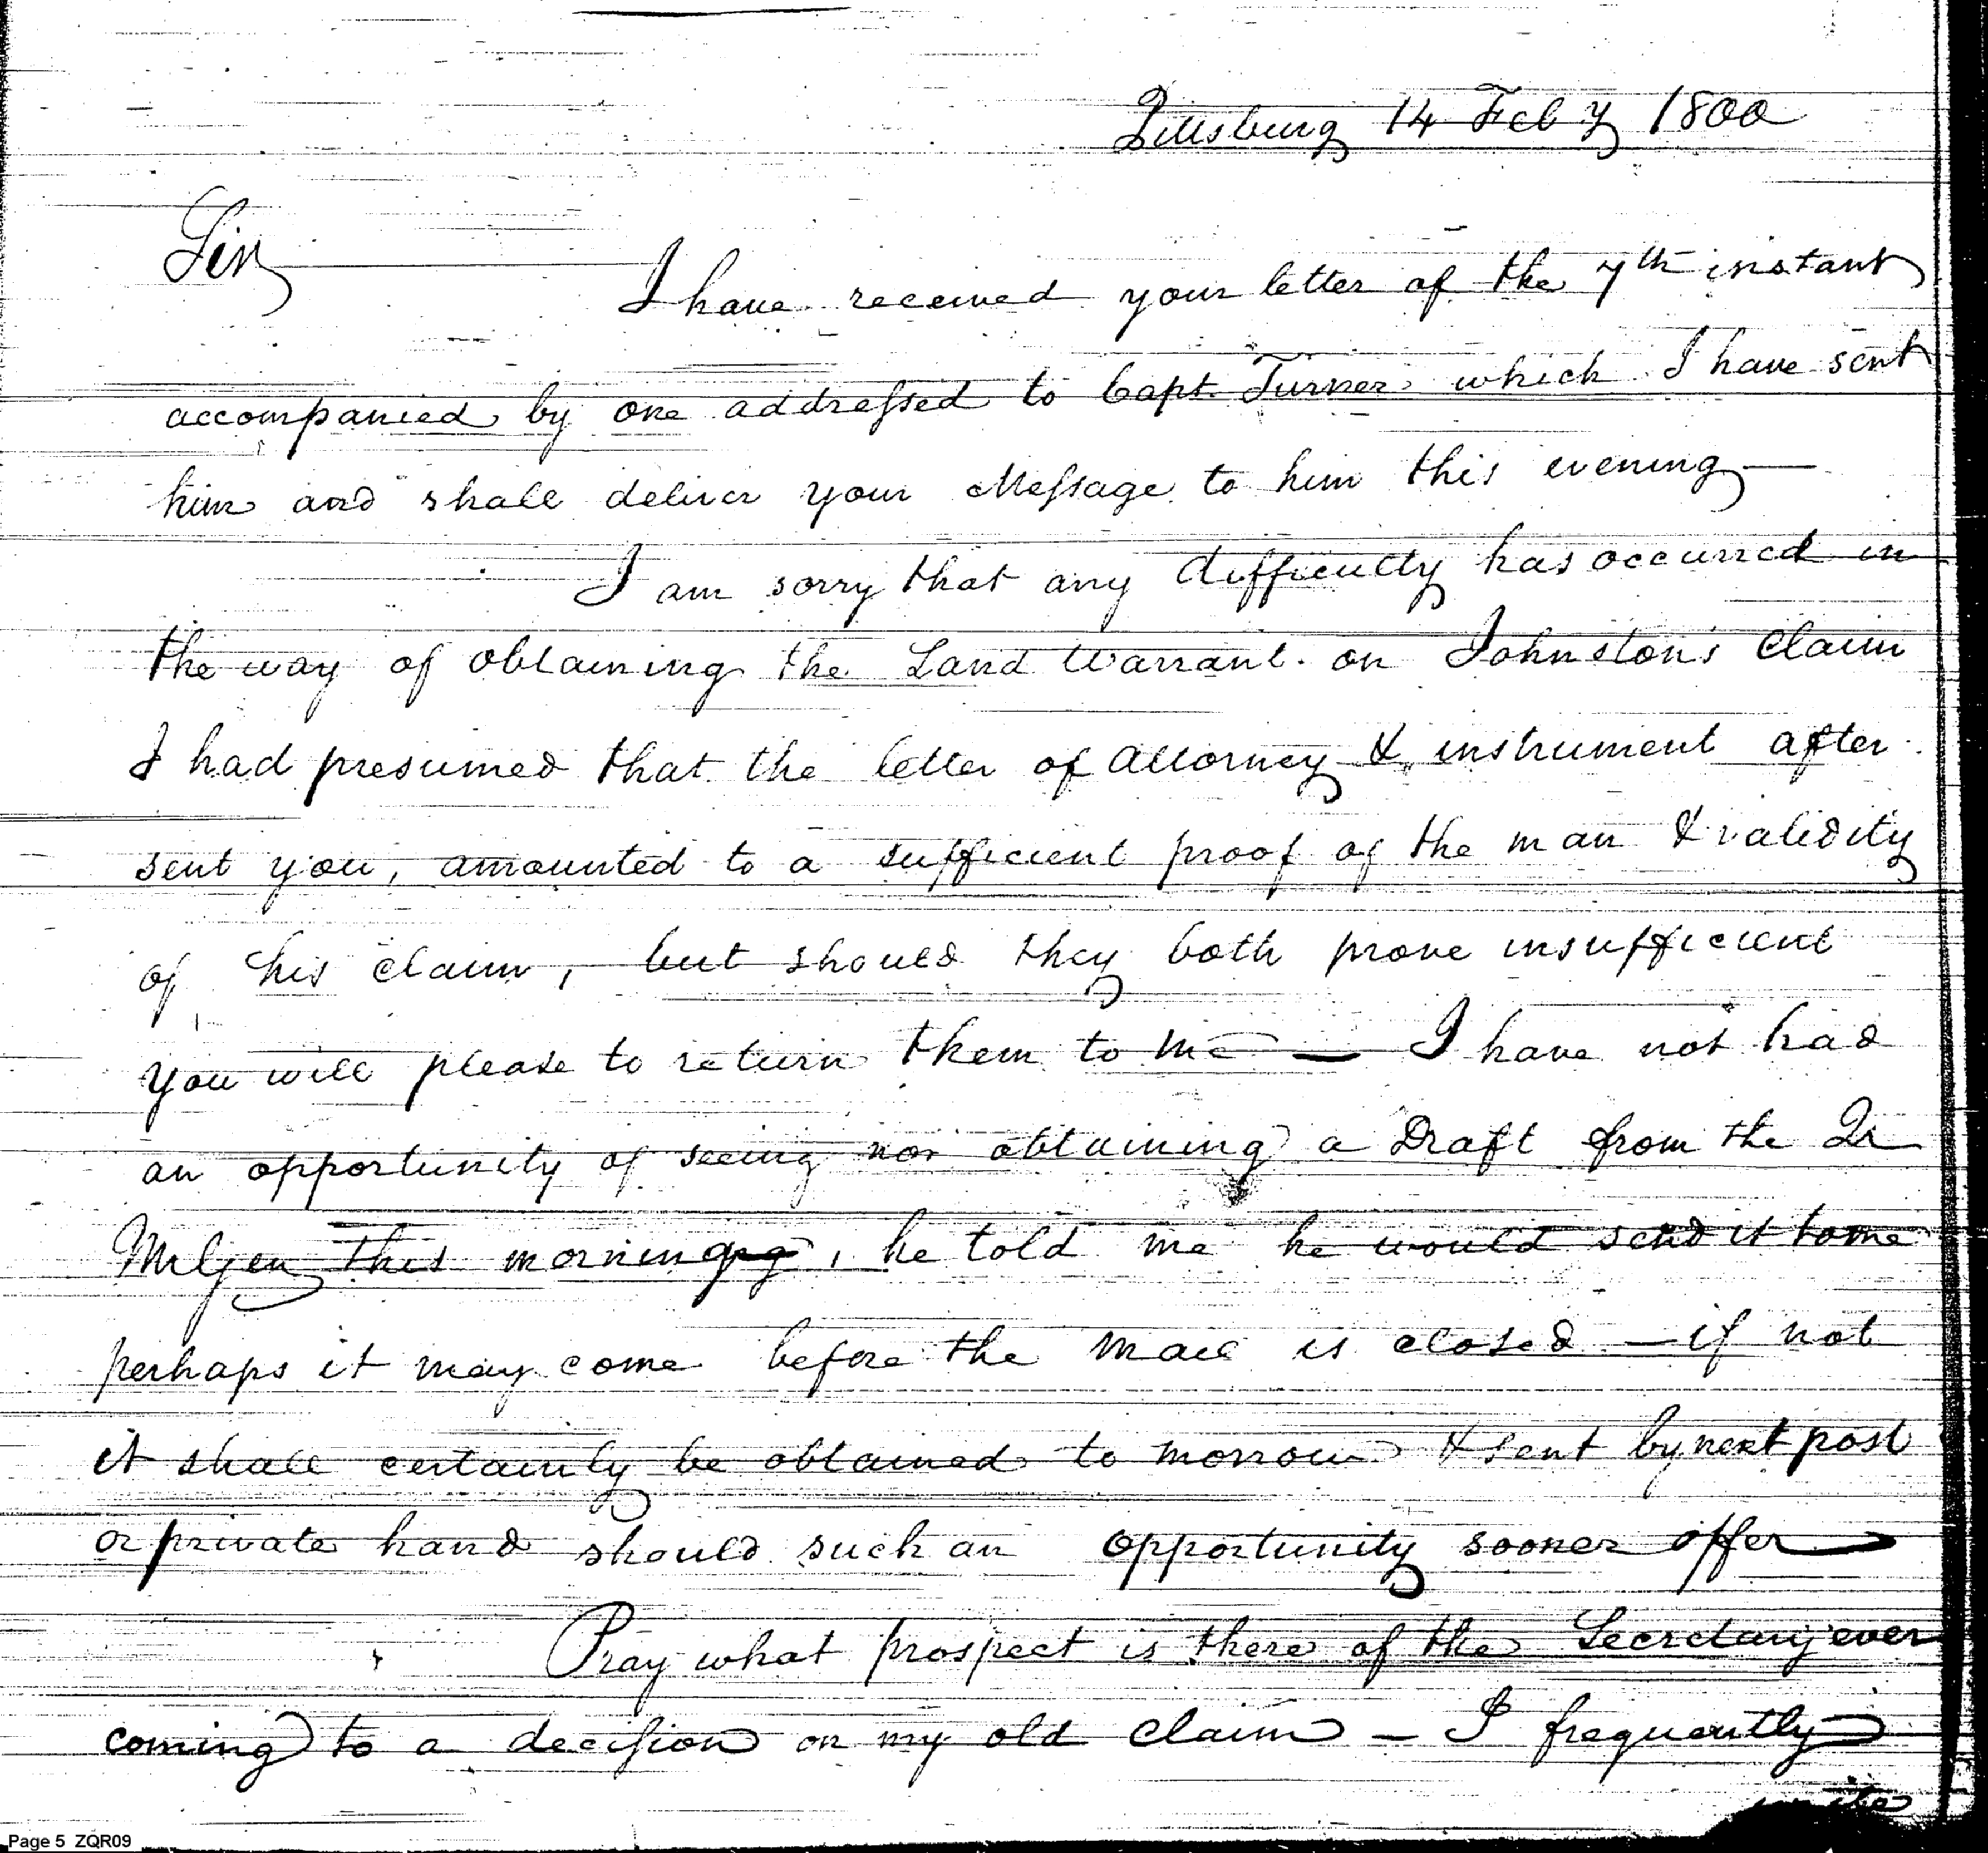 Pittsburg 14 Feby 1800
Sir
I have received your letter of the 7th instant
accompanied by one addressed to Capt. Turner which I have sent
him and shall deliver your Message to him this evening —
I am sorry that any difficulty has occurred in
the way of obtaining the Land Warrant. on Johnston's Claim
I had presumed that the letter of attorney & instrument after
sent you, amounted to a sufficient proof of the man & validity
of his claim, but should they both prove insufficient
you will please to return them to me — I have not had
an opportunity of seeing nor obtaining a Draft from the Qr
Mr Gen this morning, he told me he would send it to me
perhaps it may come before the Mail is closed — if not
it shall certainly be obtained to morrow & sent by next post
or private hand should such an opportunity sooner offer —
Pray what prospect is there of the Secretary ever
coming to a decision on my old claim — I frequently
write
Page 5 ZQR09